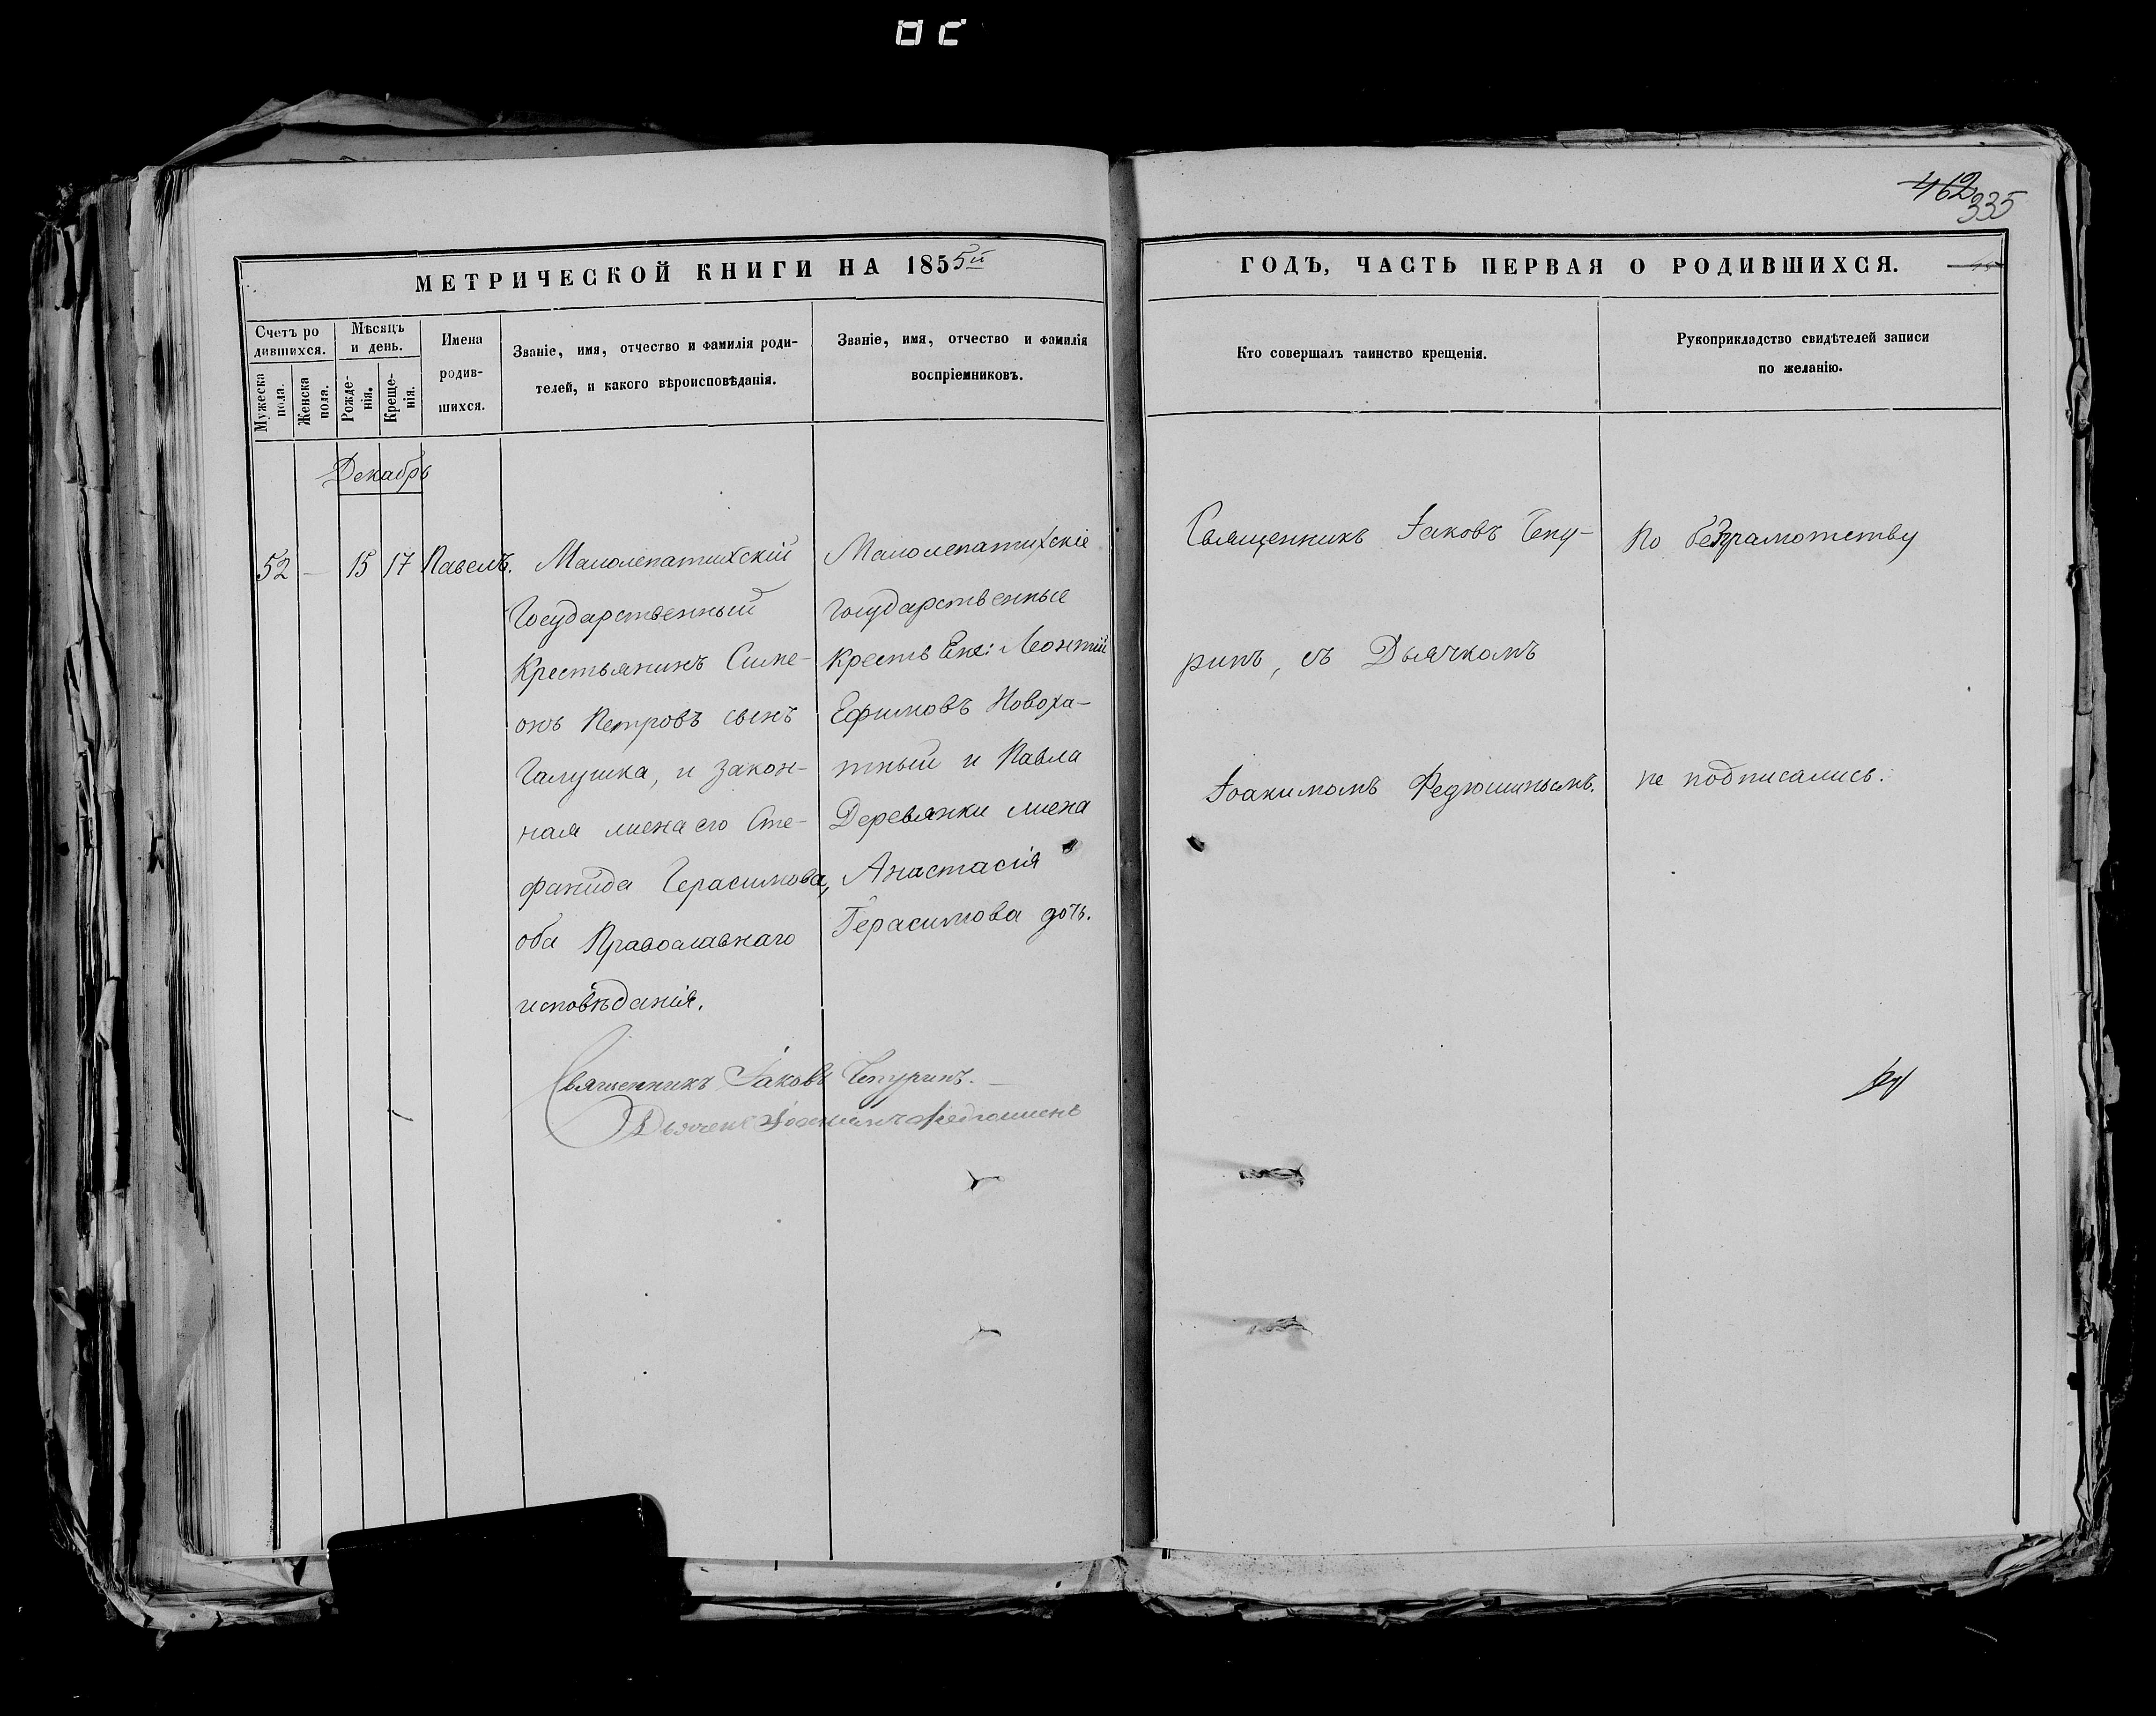 462
335
МЕТРИЧЕСКОЙ КНИГИ НА 1855й
ГОДЪ, ЧАСТЬ ПЕРВАЯ О РОДИВШИХСЯ.
Счетъ ро
дившихся.
Мужеска
пола.
Женска
пола.
Мѣсяцъ
и день.
Рожде-
нія.
Креще-
нія.
Имена
родив-
шихся.
Званіе, имя, отчество и фамилія роди-
телей, и какого вѣроисповѣданія.
Званіе, имя, отчество и фамилія
воспріемниковъ.
Кто совершалъ таинство крещенія.
Рукоприкладство свидѣтелей записи
по желанію.
Декабрь
52 — 15 17 Павелъ.
Малолепатихскій
Государственный
Крестьянинъ Симе-
онъ Петровъ сынъ
Галушка, и закон-
ная жена его Сте-
фанида Герасимова,
оба Православнаго
исповѣданія.
Малолепатихскіе
государственные
крестьяне: Леонтій
Ефимовъ Новоха-
тный и Павла
Деревянки жена
Анастасія
Герасимова дочь.
Священникъ Іаковъ Чепу-
ринъ, съ Дьячкомъ
Іоакимомъ Федюшинымъ.
По безграмотству
не подписались.
Священникъ Іаковъ Чепуринъ.
Дьячекъ Іоакимъ Федюшинъ